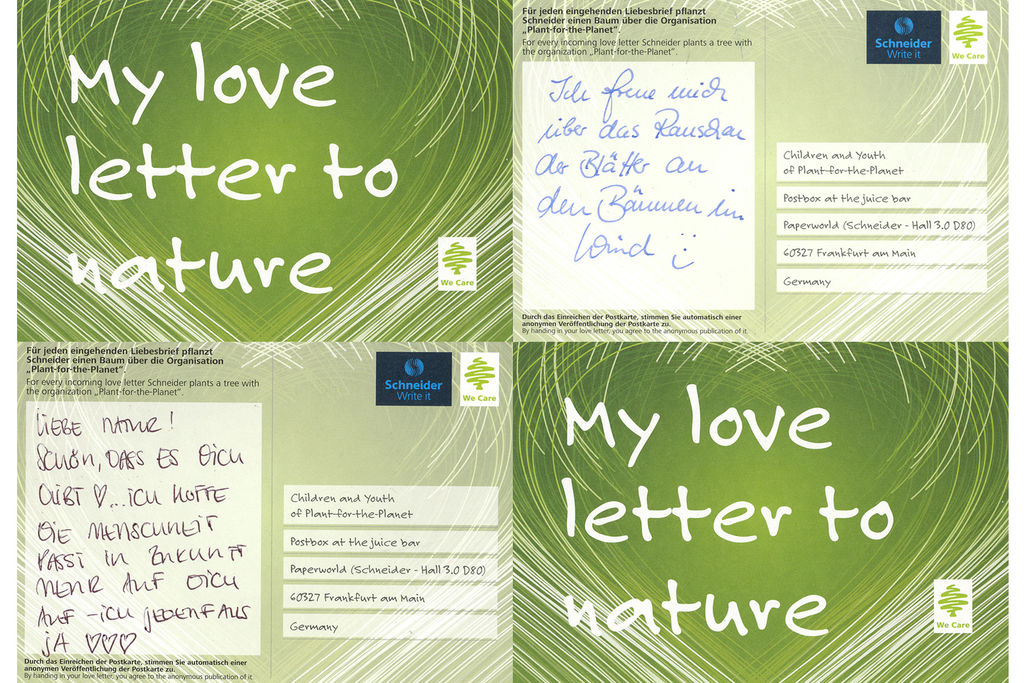 My love
letter to
nature
We Care
Für jeden eingehenden Liebesbrief pflanzt
Schneider einen Baum über die Organisation
„Plant-for-the-Planet“.
For every incoming love letter Schneider plants a tree with
the organization „Plant-for-the-Planet“.
Schneider
Write it
We Care
Ich freue mich
über das Rauschen
der Blätter an
den Bäumen im
Wind
Children and Youth
of Plant-for-the-Planet
Postbox at the juice bar
Paperworld (Schneider - Hall 3.0 D80)
60327 Frankfurt am Main
Germany
Durch das Einreichen der Postkarte, stimmen Sie automatisch einer
anonymen Veröffentlichung der Postkarte zu.
By handing in your love letter, you agree to the anonymous publication of it.
Für jeden eingehenden Liebesbrief pflanzt
Schneider einen Baum über die Organisation
„Plant-for-the-Planet“.
For every incoming love letter Schneider plants a tree with
the organization „Plant-for-the-Planet“.
Schneider
Write it
We Care
LIEBE NATUR!
SCHÖN, DASS ES DICH
GIBT ♡...ICH HOFFE
DIE MENSCHHEIT
PASST IN ZUKUNFT
MEHR AUF DICH
AUF - ICH JEDENFALLS
JA ♡♡♡
Children and Youth
of Plant-for-the-Planet
Postbox at the juice bar
Paperworld (Schneider - Hall 3.0 D80)
60327 Frankfurt am Main
Germany
Durch das Einreichen der Postkarte, stimmen Sie automatisch einer
anonymen Veröffentlichung der Postkarte zu.
By handing in your love letter, you agree to the anonymous publication of it.
My love
letter to
nature
We Care